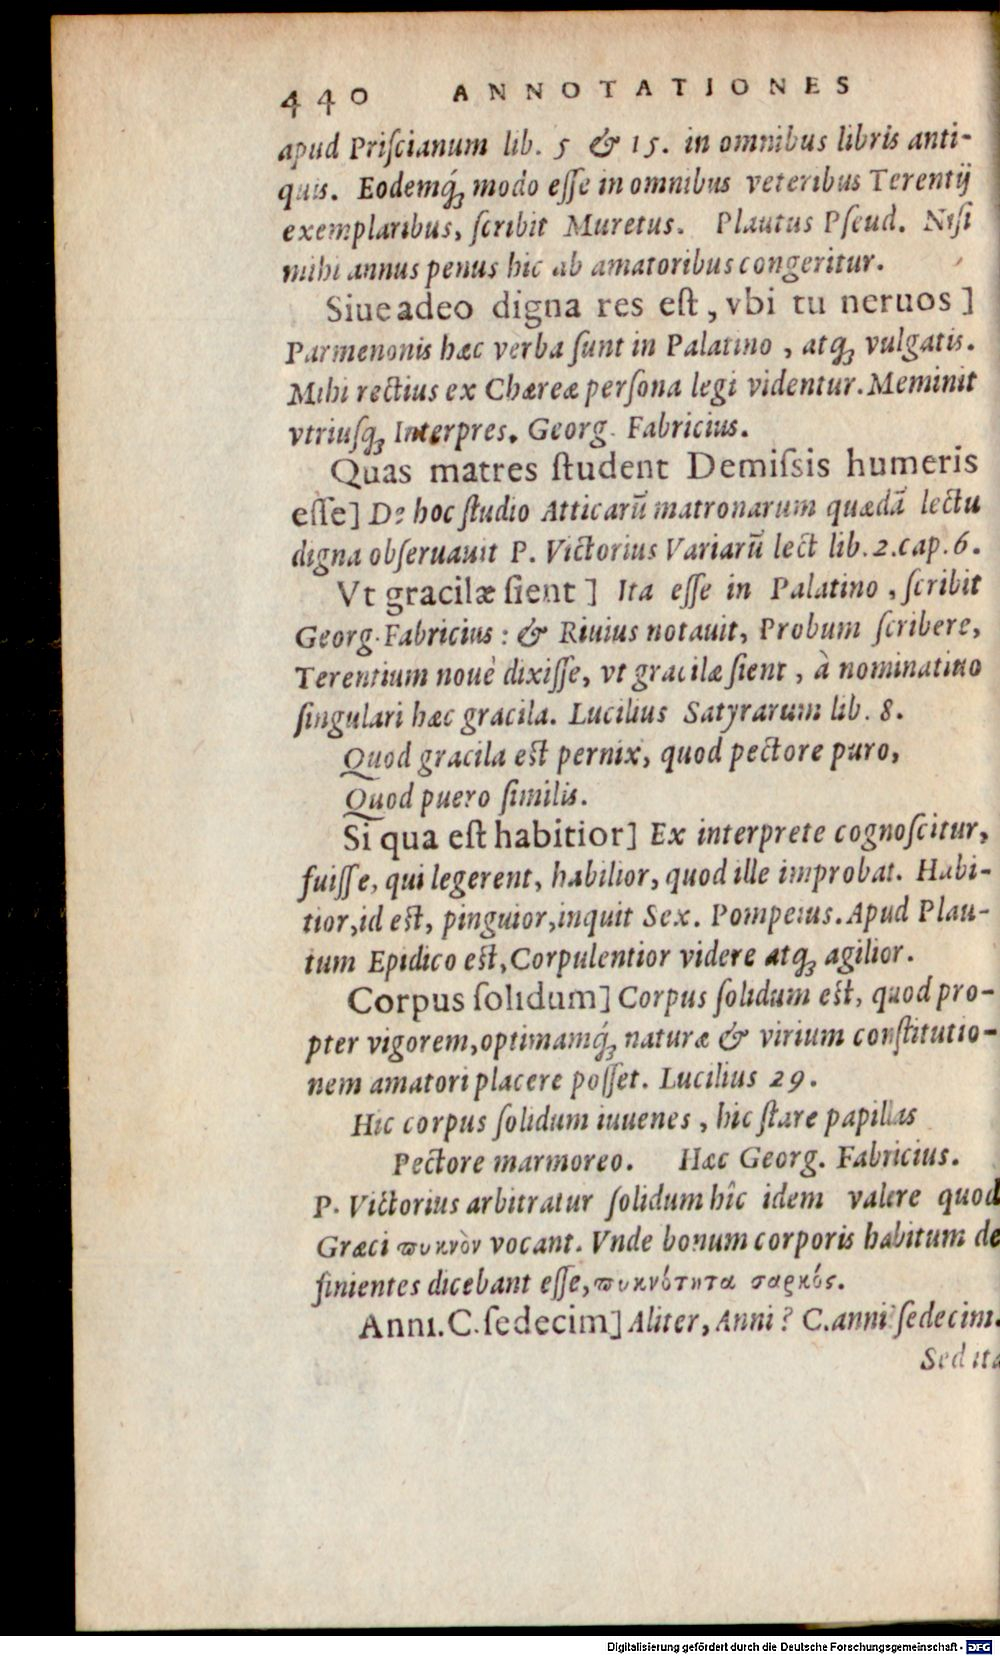 440 ANNOTATIONES
apud Priſcianum lib. 5 & 15. in omnibus libris anti-
quis. Eodemq́ꝫ modo eſſe in omnibus veteribus Terentij
exemplaribus, ſcribit Muretus. Plautus Pſeud. Niſi
mihi annus penus hic ab amatoribus congeritur.
Siue adeo digna res eſt, vbi tu neruos]
Parmenonis hæc verba ſunt in Palatino, atqꝫ vulgatis.
Mihi rectius ex Chæreæ perſona legi videntur. Meminit
vtriuſqꝫ Interpres. Georg. Fabricius.
Quas matres ſtudent Demiſsis humeris
eſſe] De hoc ſtudio Atticarū matronarum quædā lectu
digna obſeruauit P. Victorius Variarū lect lib. 2. cap. 6.
Vt gracilæ ſient] Ita eſſe in Palatino, ſcribit
Georg. Fabricius: & Riuius notauit, Probum ſcribere,
Terentium nouè dixiſſe, vt gracilæ ſient, à nominatiuo
ſingulari hæc gracila. Lucilius Satyrarum lib. 8.
Quod gracila eſt pernix, quod pectore puro,
Quod puero ſimilis.
Si qua eſt habitior] Ex interprete cognoſcitur,
fuiſſe, qui legerent, habilior, quod ille improbat. Habi-
tior, id eſt, pinguior, inquit Sex. Pompeius. Apud Plau-
tum Epidico eſt, Corpulentior videre atqꝫ agilior.
Corpus ſolidum] Corpus ſolidum eſt, quod pro-
pter vigorem, optimamq́ꝫ naturæ & virium conſtitutio-
nem amatori placere poſſet. Lucilius 29.
Hic corpus ſolidum iuuenes, hic ſtare papillas
Pectore marmoreo. Hæc Georg. Fabricius.
P. Victorius arbitratur ſolidum hîc idem valere quod
Græci πυκνὸν vocant. Vnde bonum corporis habitum de
finientes dicebant eſſe, πυκνότητα σαρκός.
Anni. C. ſedecim] Aliter, Anni? C. anni? ſedecim.
Sed ita
Digitalisierung gefördert durch die Deutsche Forschungsgemeinschaft - DFG